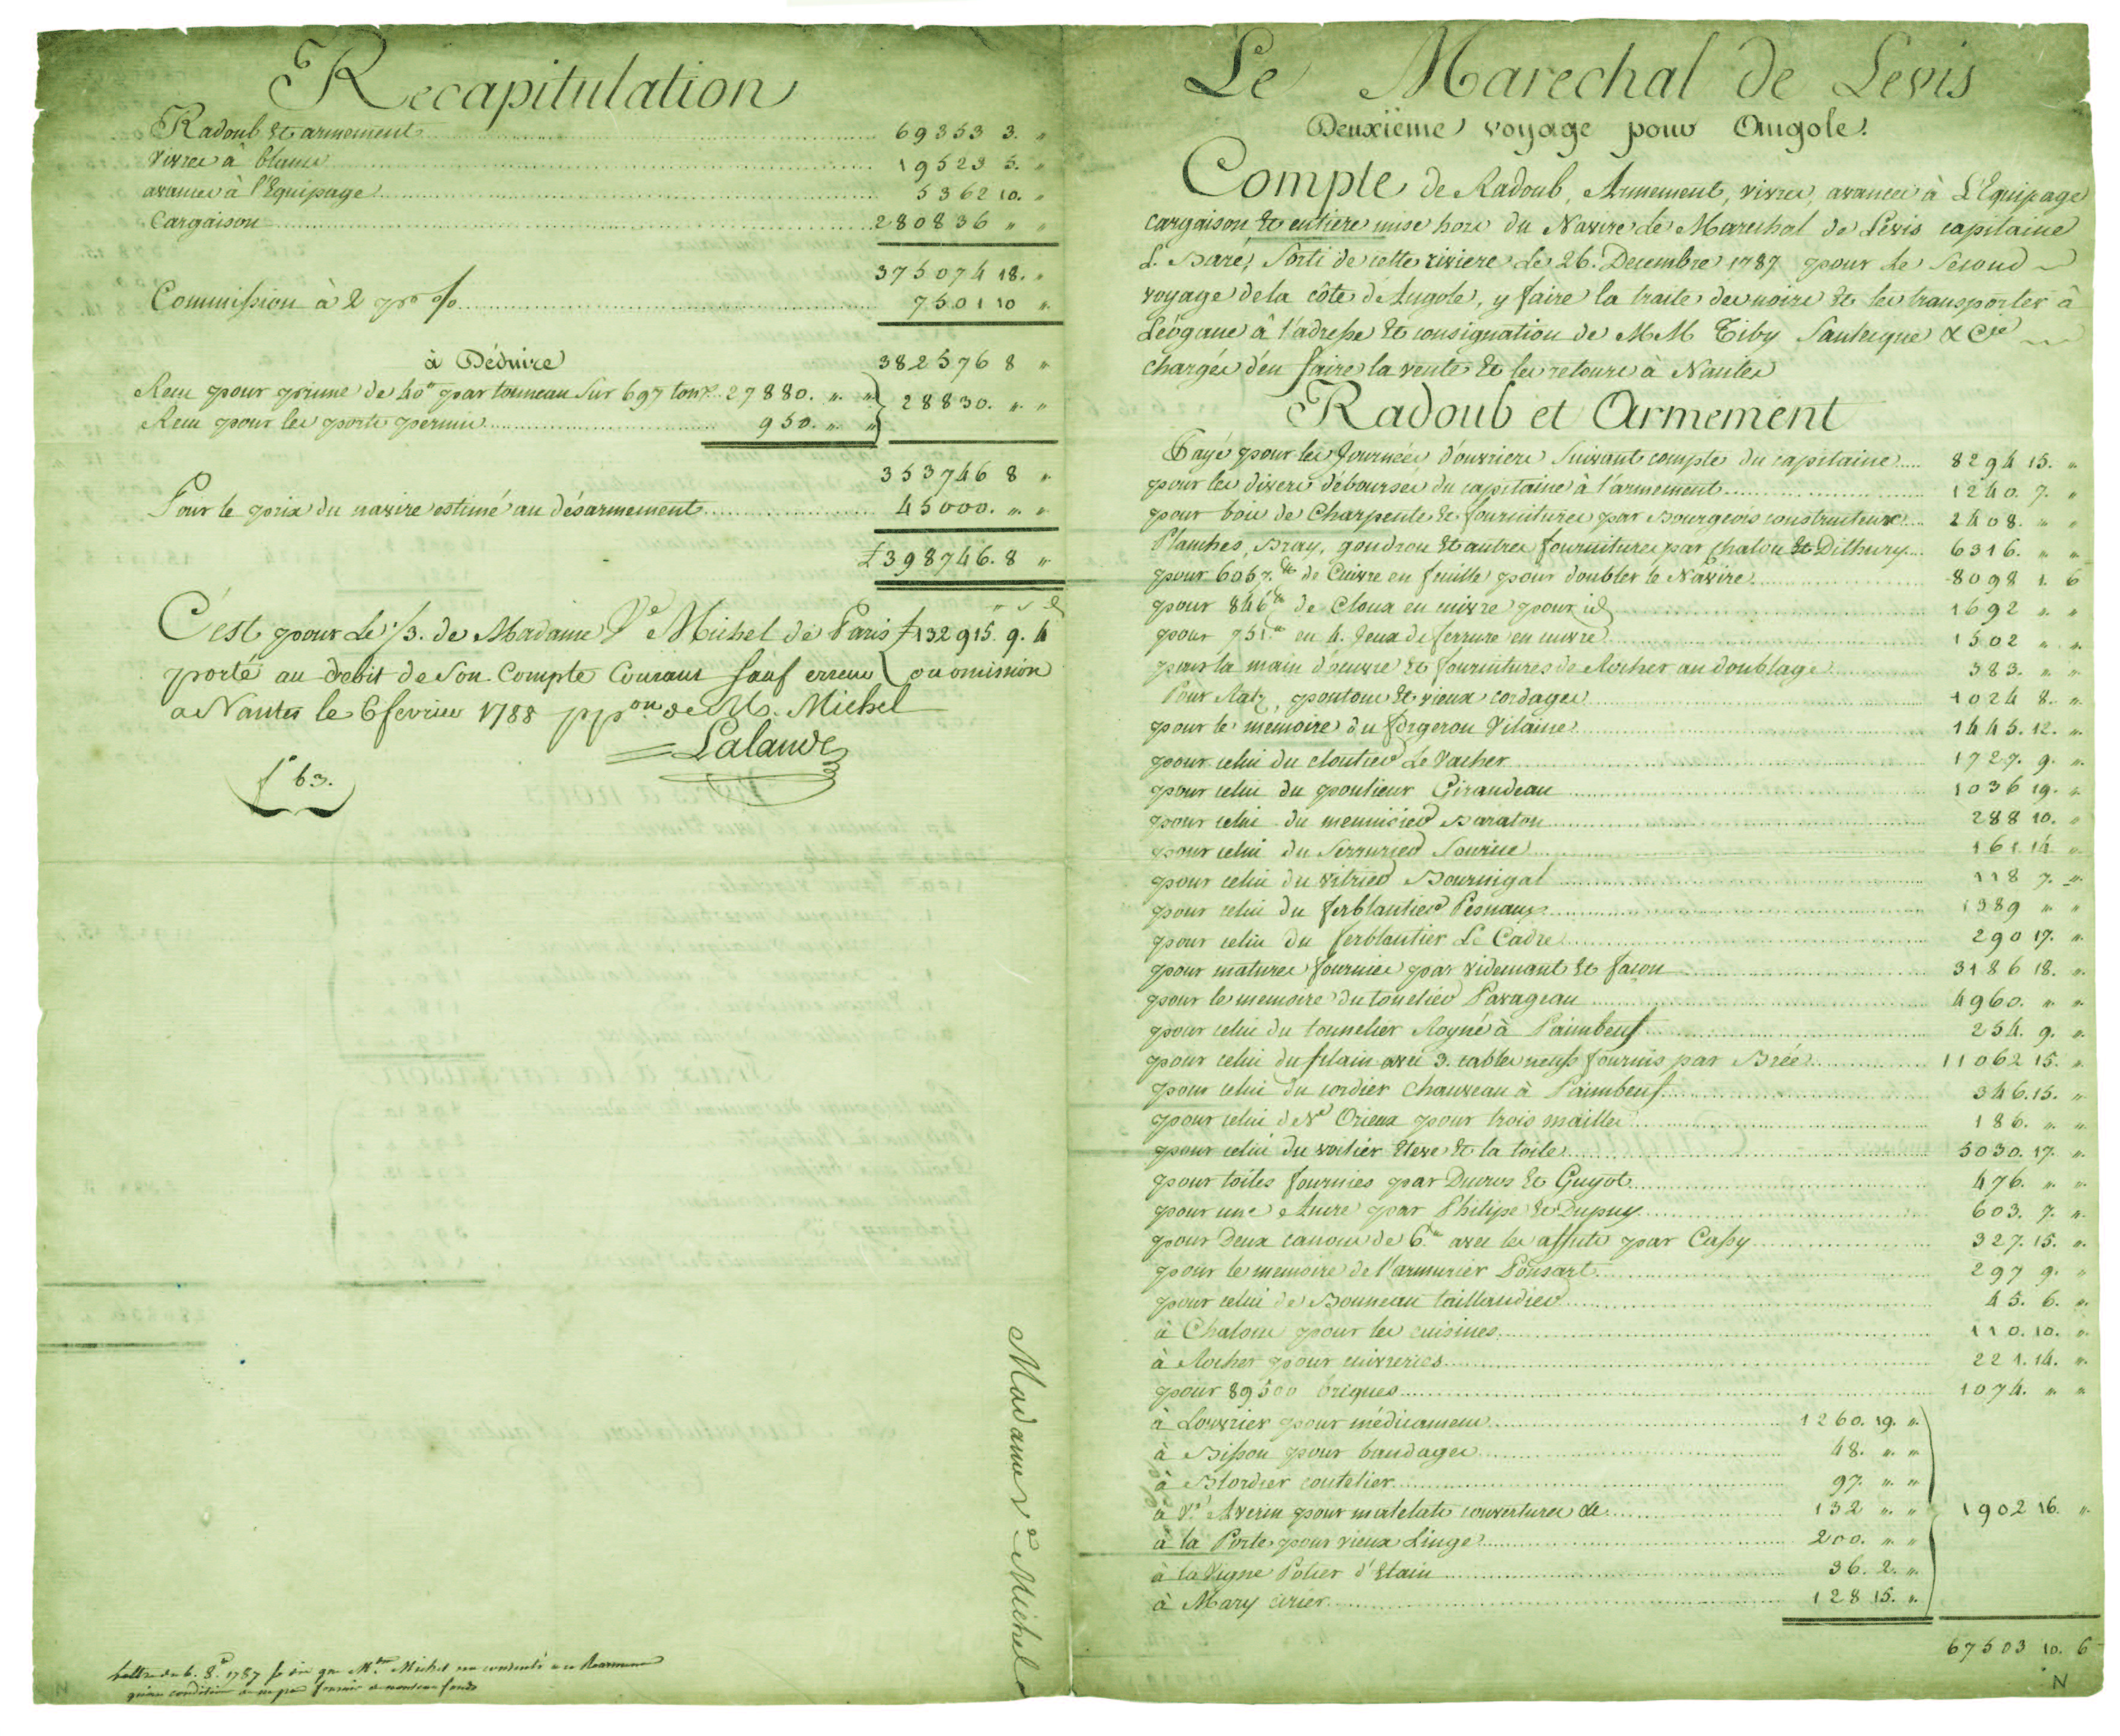 Recapitulation
Radoub et armement 69353 3. "
vivres à blanc 19523 5. "
avances à l'Equipage 5362 10. "
Cargaison 280836 " "
375074 18. "
Commission à 2 pro % 7501 10 "
382576 8 "
à Déduire
Recu pour prime de 40# par tonneau sur 697 tonx 27880. " "
28830. " "
Recu pour les ports permis 950. " "
353746 8 "
Pour le prix du navire estimé au désarmement 45000. " "
₶398746. 8 "
C'est pour le 1/3. de Madame Ve Michel de Paris ₶132915. 9. 4
porté au debit de son Compte Courant sauf erreur ou omission
a Nantes le 6 fevrier 1788 pp on de Ms. Michel
Lalande
fo 63.
Madame Ve Michel
Lettre du 6. 8re 1787
Le Marechal de Levis
Deuxième voyage pour Angole.
Compte de Radoub, Armement, vivres, avances à L'Equipage
cargaison et entiere mise hors du Navire Le Marechal de Levis capitaine
L. Baré, Sorti de cette riviere Le 26. Decembre 1787 pour Le Second
voyage de la côte d'Angole, y faire la traite des noirs et les transporter à
Léôgane à l'adresse et consignation de MM Tiby Saulnigue & Cie
chargés d'en faire la vente et les retours à Nantes
Radoub et Armement
Payé pour les Journées d'ouvriers Suivant compte du capitaine 8294 15. "
pour les divers déboursés du capitaine à l'armement 1240. 7. "
pour bois de Charpente et fournitures par Bourgeois constructeur 2408. " "
Planches, Bray, goudron et autres fournitures par Chalon et Dithurry 6316. " "
pour 6067.# de Cuivre en feuilles pour doubler le Navire 8098 1. 6
pour 846# de Cloux en cuivre pour id 1692 " "
pour 751.# en 4. Jeux de ferrure en cuivre 1502 " "
pour la main d'oeuvre et fournitures de Rocher au doublage 383. " "
Pour Ratz, pontons et vieux cordages 1024 8. "
pour le memoire du forgeron Vilaine 1445. 12. "
pour celui du cloutier Le Vacher 1727. 9. "
pour celui du poulieur Giraudeau 1036 19. "
pour celui du menuisier Baraton 288 10. "
pour celui du Serrurier Sourice 161 14 "
pour celui du vitrier Bournigal 118 7. "
pour celui du ferblantier Pesnaux 1389 " "
pour celui du ferblantier Le Cadre 290 17. "
pour matures fournies par Videmant et facon 3186 18. "
pour le memoire du tonelier Parageau 4960. " "
pour celui du tonnelier Royné à Paimbeuf 254. 9. "
pour celui du filain avec 3. cables neufs fournis par Brée 11062 15. "
pour celui du cordier Chauveau à Paimbeuf 346. 15. "
pour celui de Ve Orieux pour trois mailles 186. " "
pour celui du voilier et la toile 5030. 17. "
pour toiles fournies par Ducros et Guyot 476. " "
pour une Ancre par Philipe et Dupuy 603. 7. "
pour Deux canons de 6.# avec les affuts par Cassy 327. 15. "
pour le memoire de l'armurier Ponsart 297 9. "
pour celui de Bonneau taillandier 45. 6. "
à Chalom pour les cuisines 110. 10. "
à Rocher pour cuivreries 221. 14. "
pour 89500 briques 1074. " "
à Louvrier pour médicamens 1260. 19. "
à Bisson pour bandages 48. " "
à Blordier coutelier 97. " "
à Ve Averin pour matelats couvertures &c 132 " " 1902 16. "
à la Porte pour vieux Linge 200. " "
à la Vigne Potier d'Etain 36. 2. "
à Mary cirier 128 15. "
67503 10. 6
N